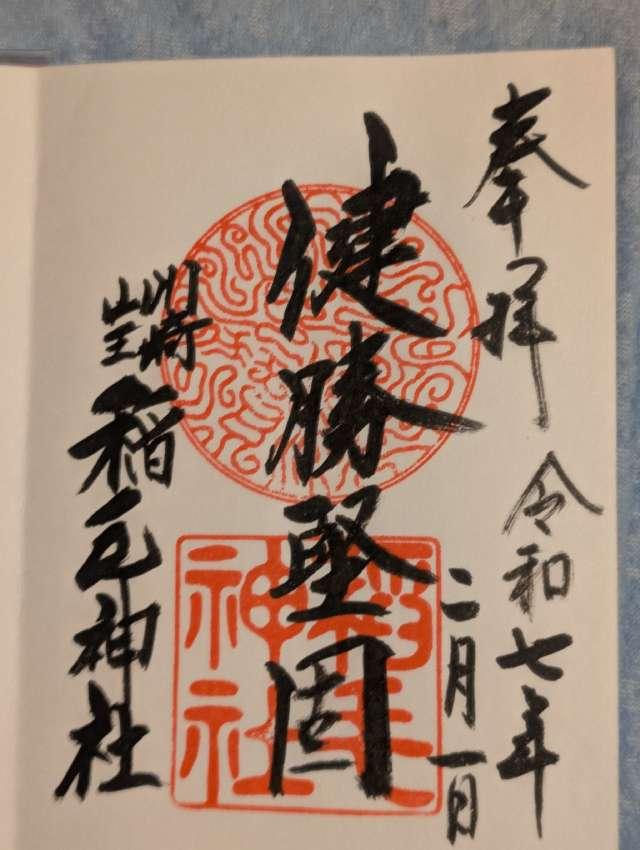 奉拝
令和七年
二月一日
健勝堅固
川崎
山王
稲毛神社
稲毛
神社